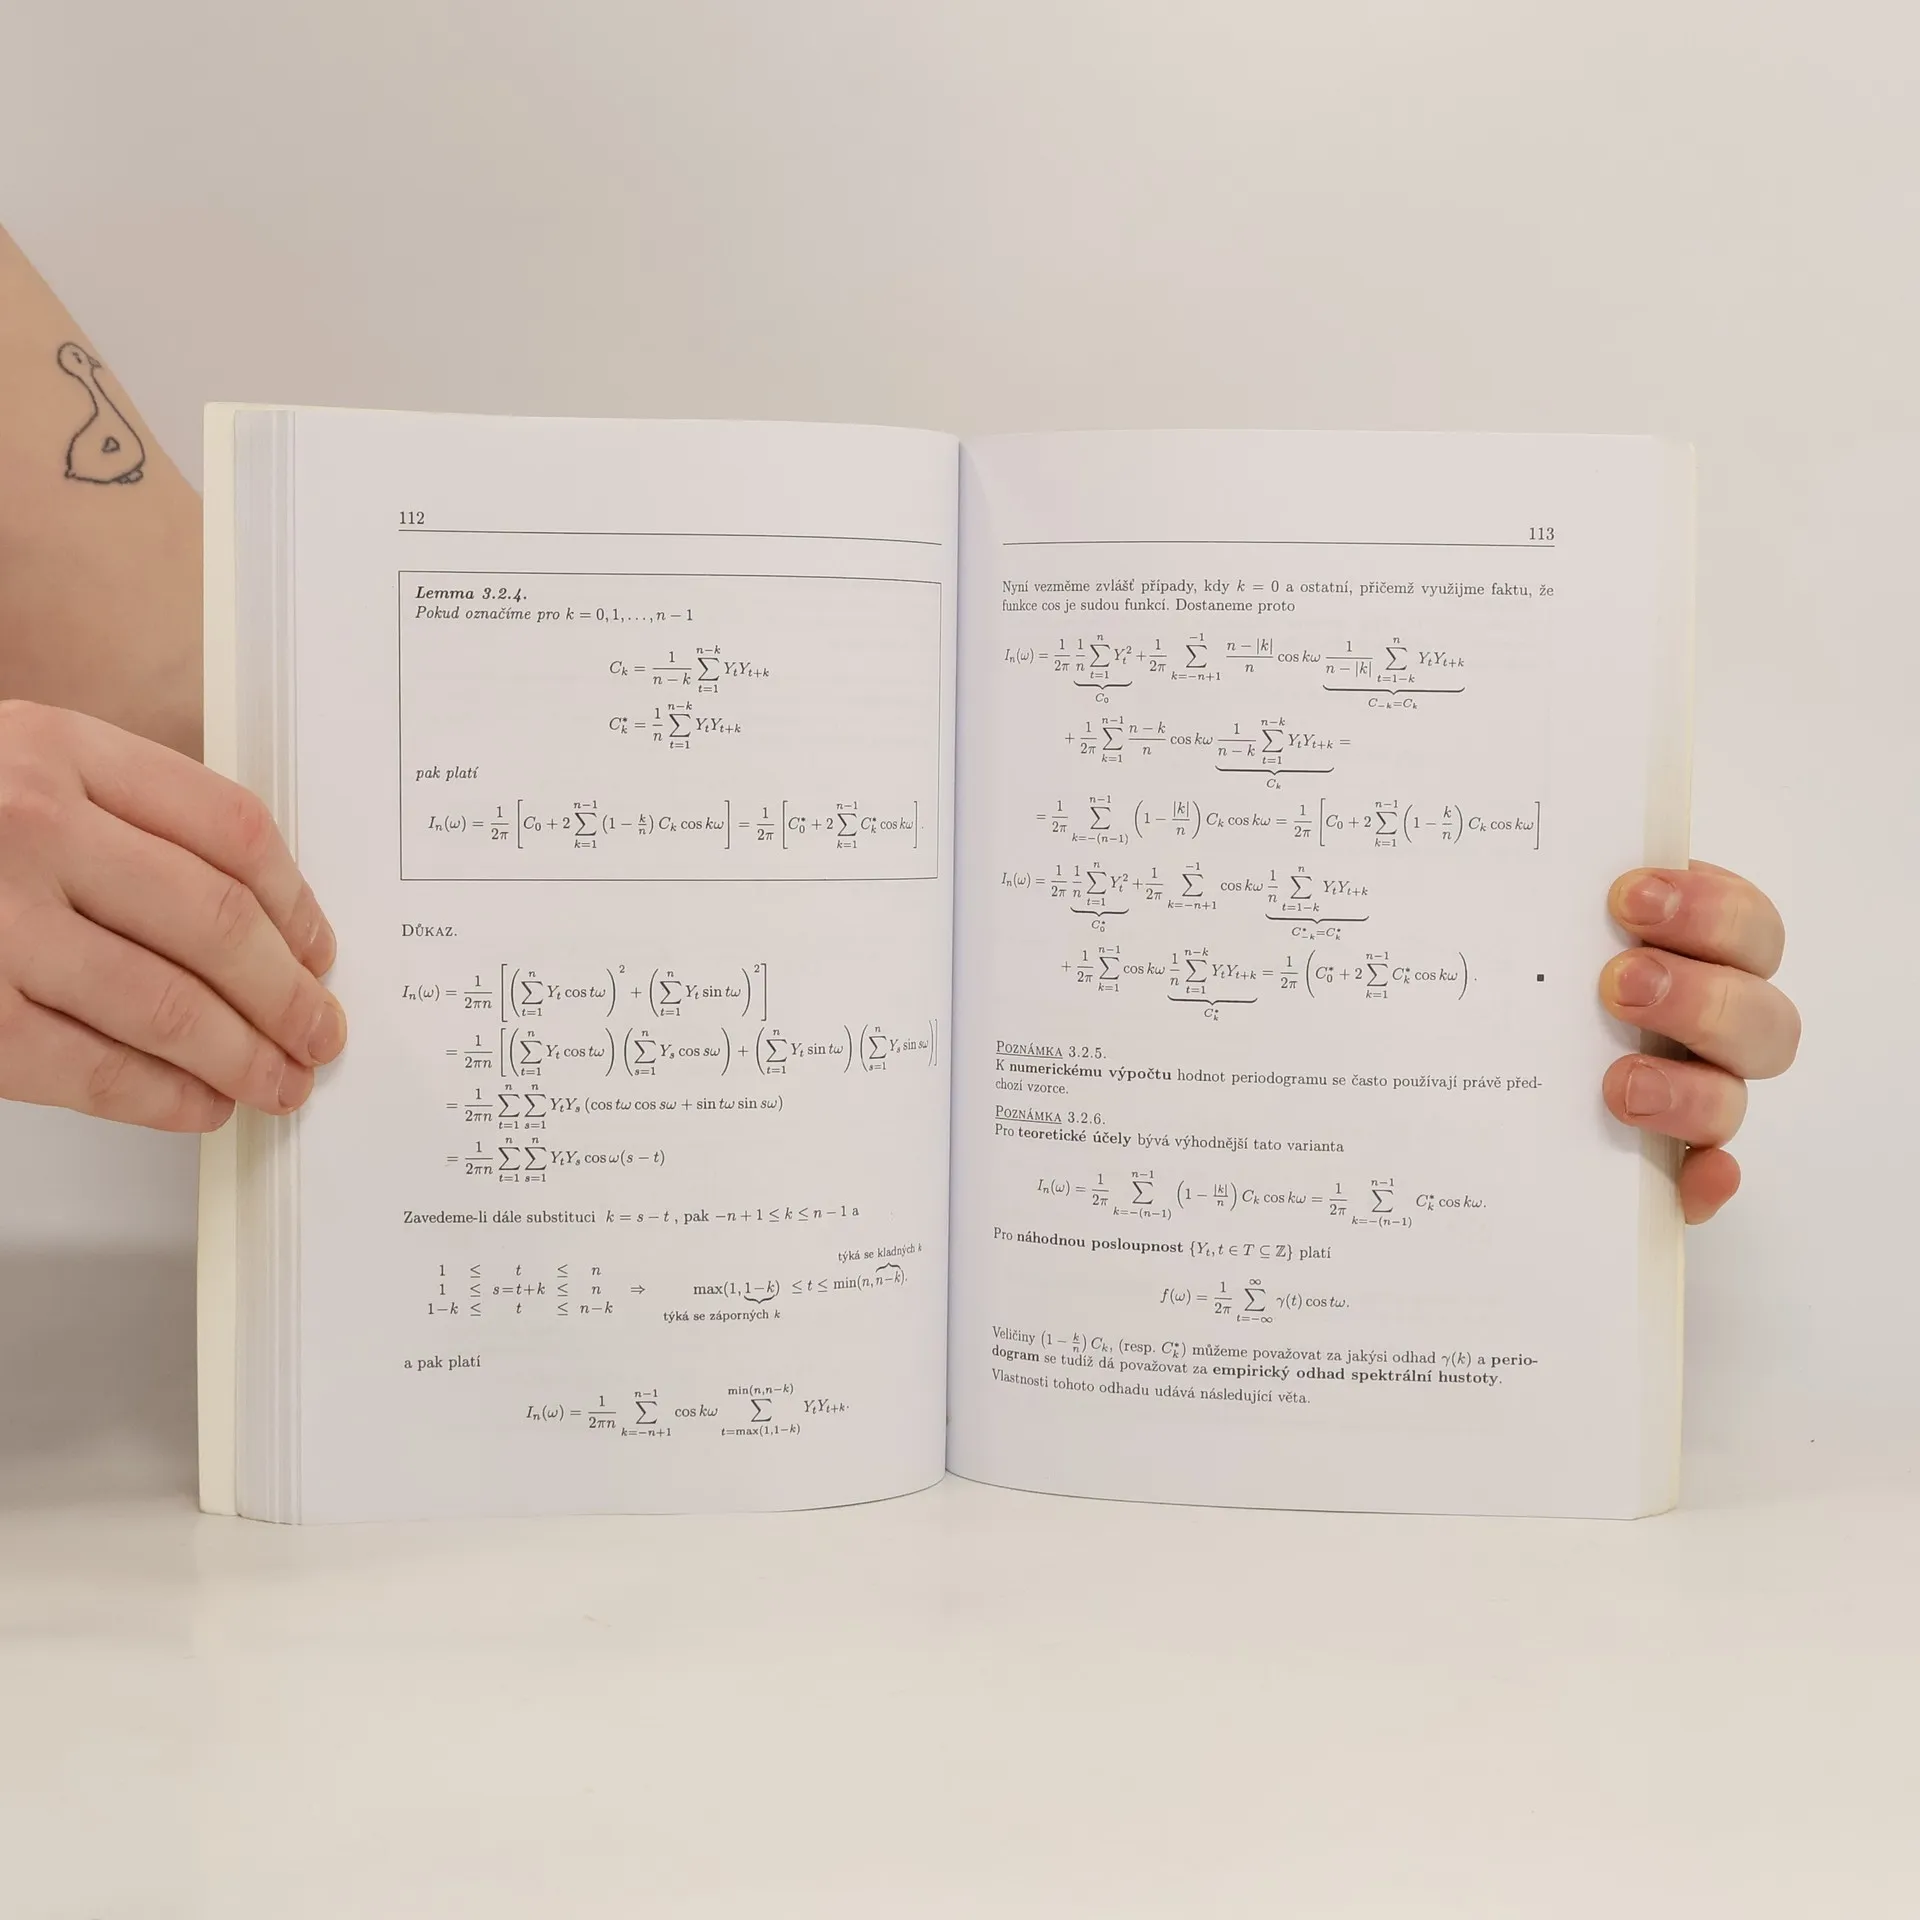 112
Lemma 3.2.4.
Pokud označíme pro k = 0, 1, . . . , n − 1
C_k = \frac{1}{n-k} \sum_{t=1}^{n-k} Y_t Y_{t+k}
C_k^* = \frac{1}{n} \sum_{t=1}^{n-k} Y_t Y_{t+k}
pak platí
I_n(ω) = \frac{1}{2π} [C_0 + 2 \sum_{k=1}^{n-1} (1 − \frac{k}{n}) C_k cos kω] = \frac{1}{2π} [C_0^* + 2 \sum_{k=1}^{n-1} C_k^* cos kω].
DŮKAZ.
I_n(ω) = \frac{1}{2πn} [(\sum_{t=1}^{n} Y_t cos tω)^2 + (\sum_{t=1}^{n} Y_t sin tω)^2]
= \frac{1}{2πn} [(\sum_{t=1}^{n} Y_t cos tω) (\sum_{s=1}^{n} Y_s cos sω) + (\sum_{t=1}^{n} Y_t sin tω) (\sum_{s=1}^{n} Y_s sin sω)]
= \frac{1}{2πn} \sum_{t=1}^{n} \sum_{s=1}^{n} Y_t Y_s (cos tω cos sω + sin tω sin sω)
= \frac{1}{2πn} \sum_{t=1}^{n} \sum_{s=1}^{n} Y_t Y_s cos ω(s − t)
Zavedeme-li dále substituci k = s − t , pak −n + 1 ≤ k ≤ n − 1 a
týká se kladných k
1 ≤ t ≤ n
1 ≤ s=t+k ≤ n ⇒ max(1, 1−k) ≤ t ≤ min(n, n−k).
1−k ≤ t ≤ n−k
týká se záporných k
a pak platí
I_n(ω) = \frac{1}{2πn} \sum_{k=-n+1}^{n-1} cos kω \sum_{t=max(1,1-k)}^{min(n,n-k)} Y_t Y_{t+k}.
113
Nyní vezměme zvlášť případy, kdy k = 0 a ostatní, přičemž využijme faktu, že
funkce cos je sudou funkcí. Dostaneme proto
I_n(ω) = \frac{1}{2π} \underbrace{\frac{1}{n} \sum_{t=1}^{n} Y_t^2}_{C_0} + \frac{1}{2π} \sum_{k=-n+1}^{-1} \frac{n-|k|}{n} cos kω \underbrace{\frac{1}{n-|k|} \sum_{t=1-k}^{n} Y_t Y_{t+k}}_{C_{-k}=C_k}
+ \frac{1}{2π} \sum_{k=1}^{n-1} \frac{n-k}{n} cos kω \underbrace{\frac{1}{n-k} \sum_{t=1}^{n-k} Y_t Y_{t+k}}_{C_k} =
= \frac{1}{2π} \sum_{k=-(n-1)}^{n-1} (1 − \frac{|k|}{n}) C_k cos kω = \frac{1}{2π} [C_0 + 2 \sum_{k=1}^{n-1} (1 − \frac{k}{n}) C_k cos kω]
I_n(ω) = \frac{1}{2π} \underbrace{\frac{1}{n} \sum_{t=1}^{n} Y_t^2}_{C_0^*} + \frac{1}{2π} \sum_{k=-n+1}^{-1} cos kω \underbrace{\frac{1}{n} \sum_{t=1-k}^{n} Y_t Y_{t+k}}_{C_{-k}^*=C_k^*}
+ \frac{1}{2π} \sum_{k=1}^{n-1} cos kω \underbrace{\frac{1}{n} \sum_{t=1}^{n-k} Y_t Y_{t+k}}_{C_k^*} = \frac{1}{2π} (C_0^* + 2 \sum_{k=1}^{n-1} C_k^* cos kω) . ■
POZNÁMKA 3.2.5.
K numerickému výpočtu hodnot periodogramu se často používají právě před-
chozí vzorce.
POZNÁMKA 3.2.6.
Pro teoretické účely bývá výhodnější tato varianta
I_n(ω) = \frac{1}{2π} \sum_{k=-(n-1)}^{n-1} (1 − \frac{|k|}{n}) C_k cos kω = \frac{1}{2π} \sum_{k=-(n-1)}^{n-1} C_k^* cos kω.
Pro náhodnou posloupnost {Y_t, t ∈ T ⊆ ℤ} platí
f(ω) = \frac{1}{2π} \sum_{t=-∞}^{∞} γ(t) cos tω.
Veličiny (1 − \frac{k}{n}) C_k, (resp. C_k^*) můžeme považovat za jakýsi odhad γ(k) a perio-
dogram se tudíž dá považovat za empirický odhad spektrální hustoty.
Vlastnosti tohoto odhadu udává následující věta.